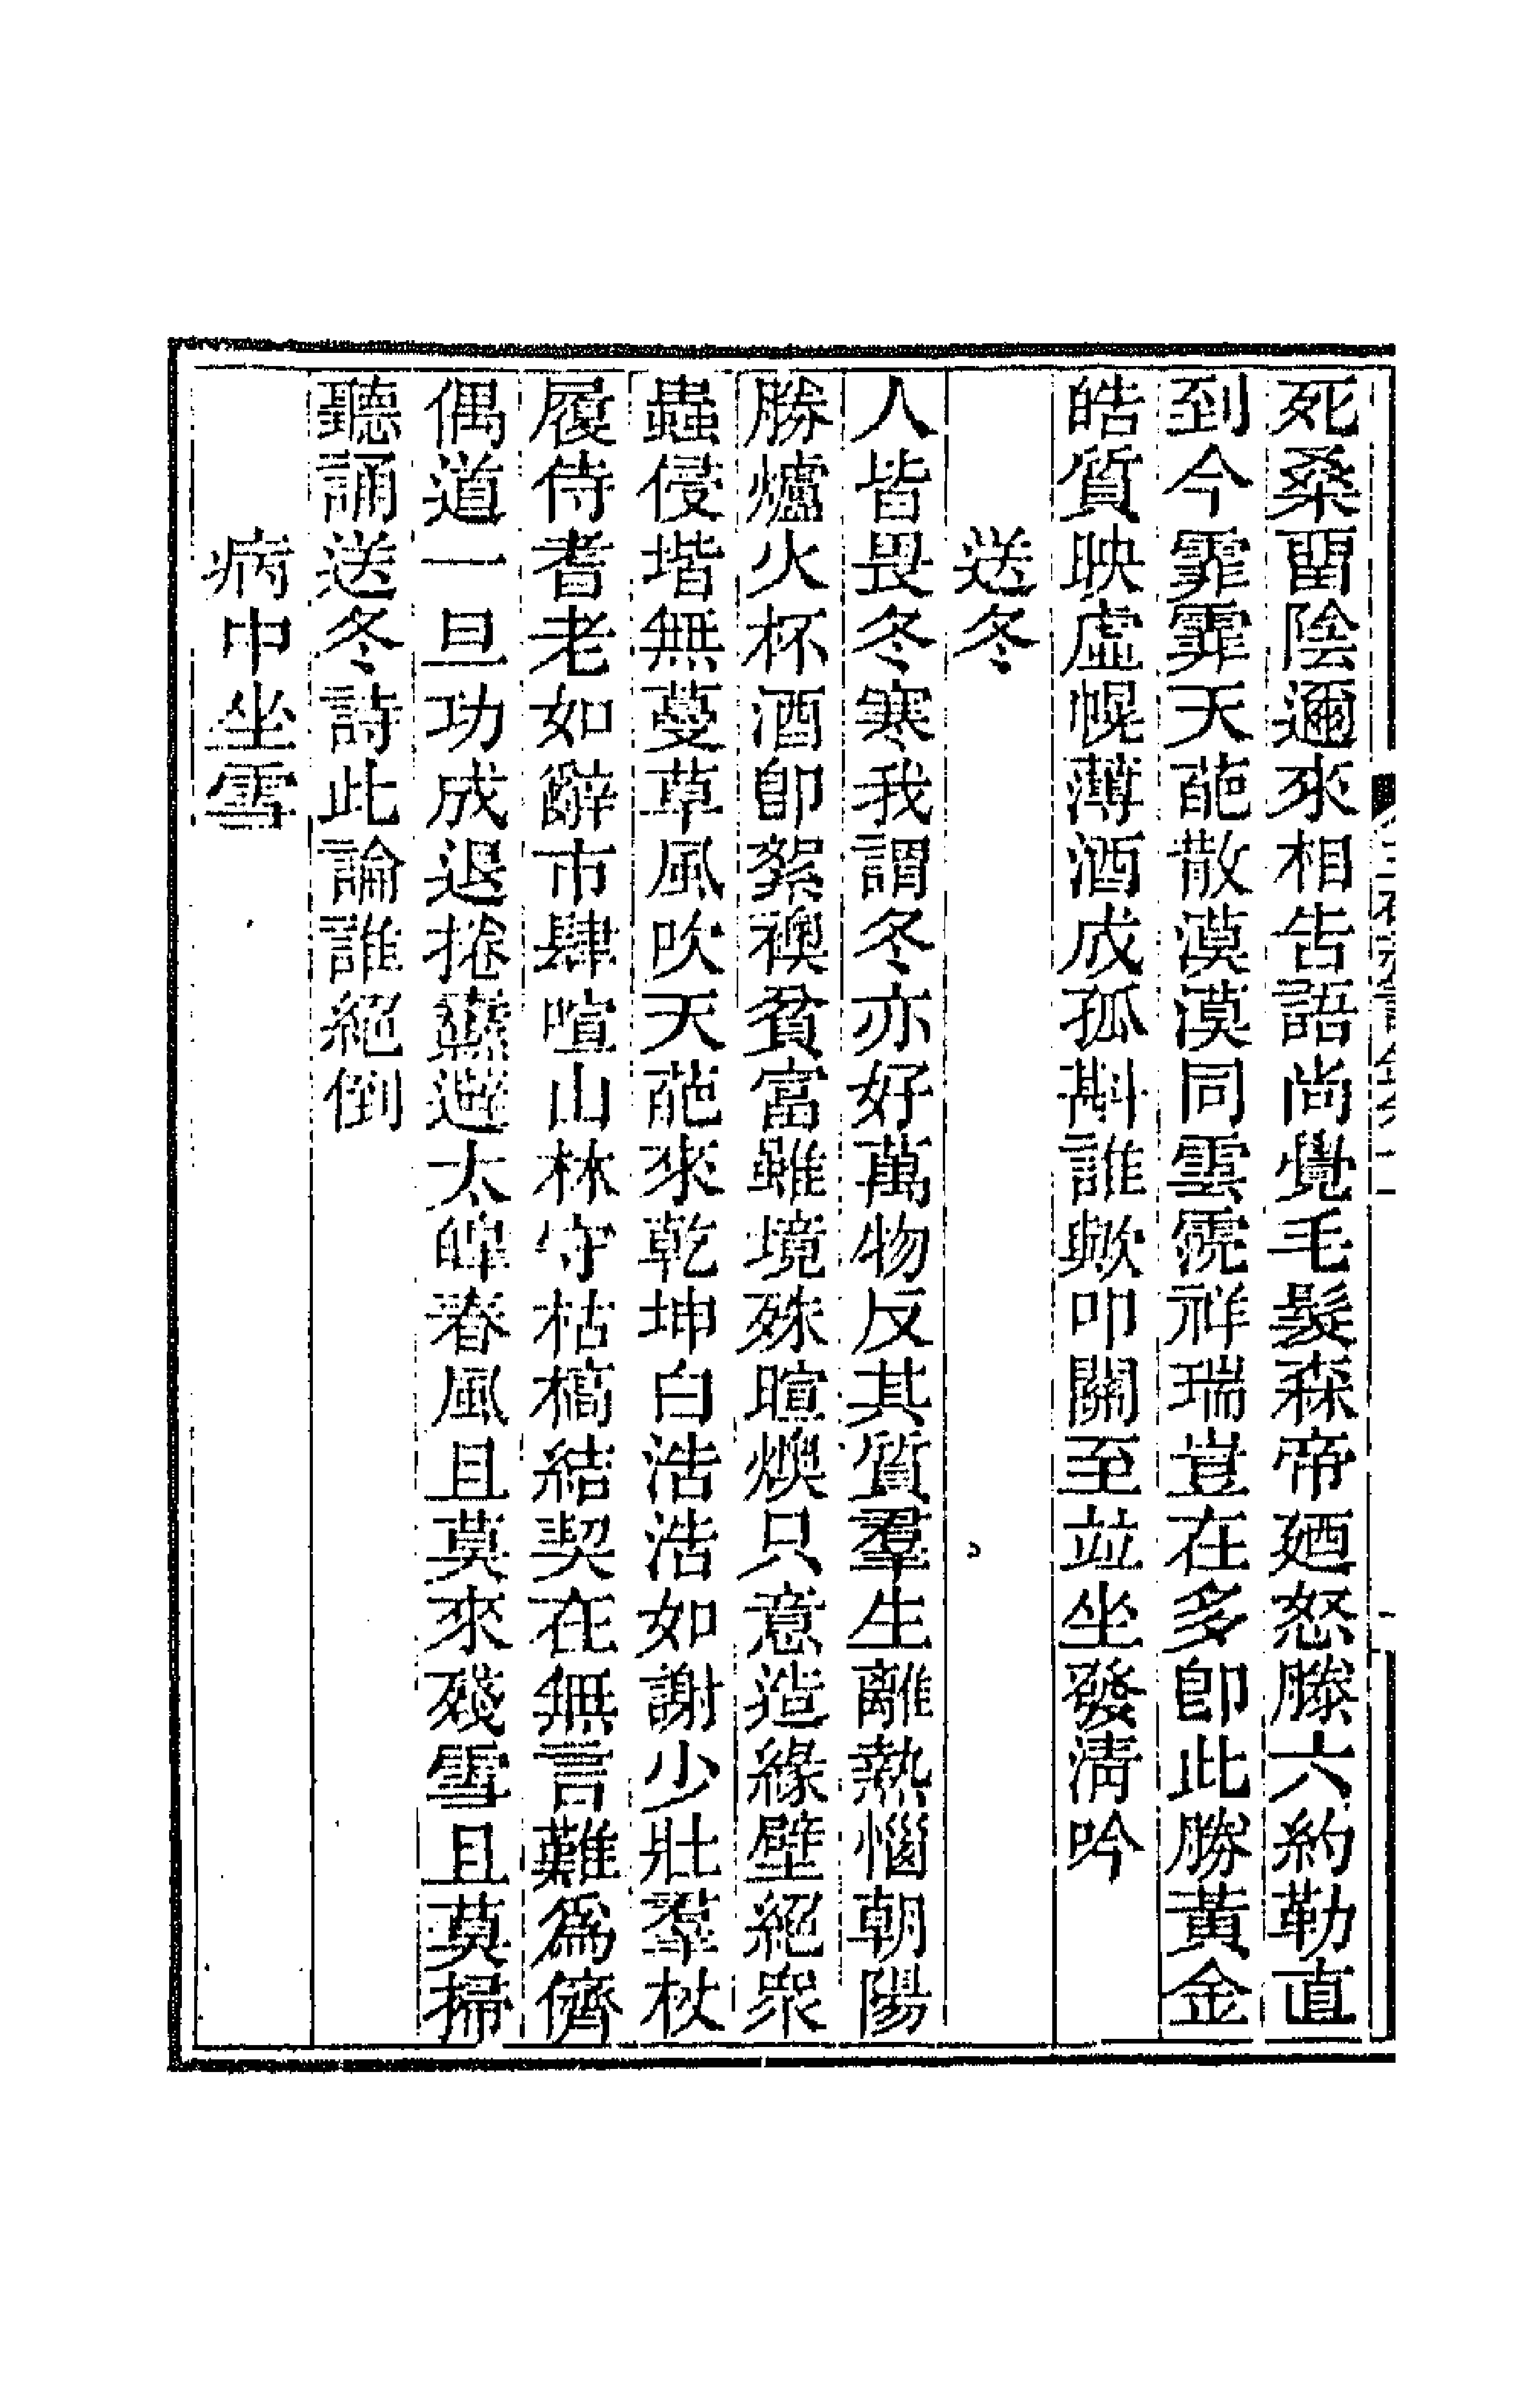 死桑畱陰邇來相告語尚覺毛髮森帝廼怒滕六約勒直
到今霏霏天葩散漠漠同雲霓祥瑞豈在多卽此勝黃金
皓質映虛幌薄酒成孤斟誰歟叩關至竝坐發淸吟
送冬
人皆畏冬寒我謂冬亦好萬物反其質羣生離熱惱朝陽
勝爐火杯酒卽絮襖貧富雖境殊暄燠只意造緣壁絕衆
蟲侵堦無蔓草風吹天葩來乾坤白浩浩如謝少壯羣杖
履侍耆老如辭市肆喧山林守枯槁結契在無言難爲儕
偶道一旦功成退捲太皞春風且莫來殘雪且莫掃
聽誦送冬詩此論誰絕倒
病中坐雪